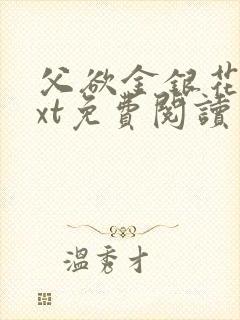 父欲金银花
xt免費閱讀
溫秀才